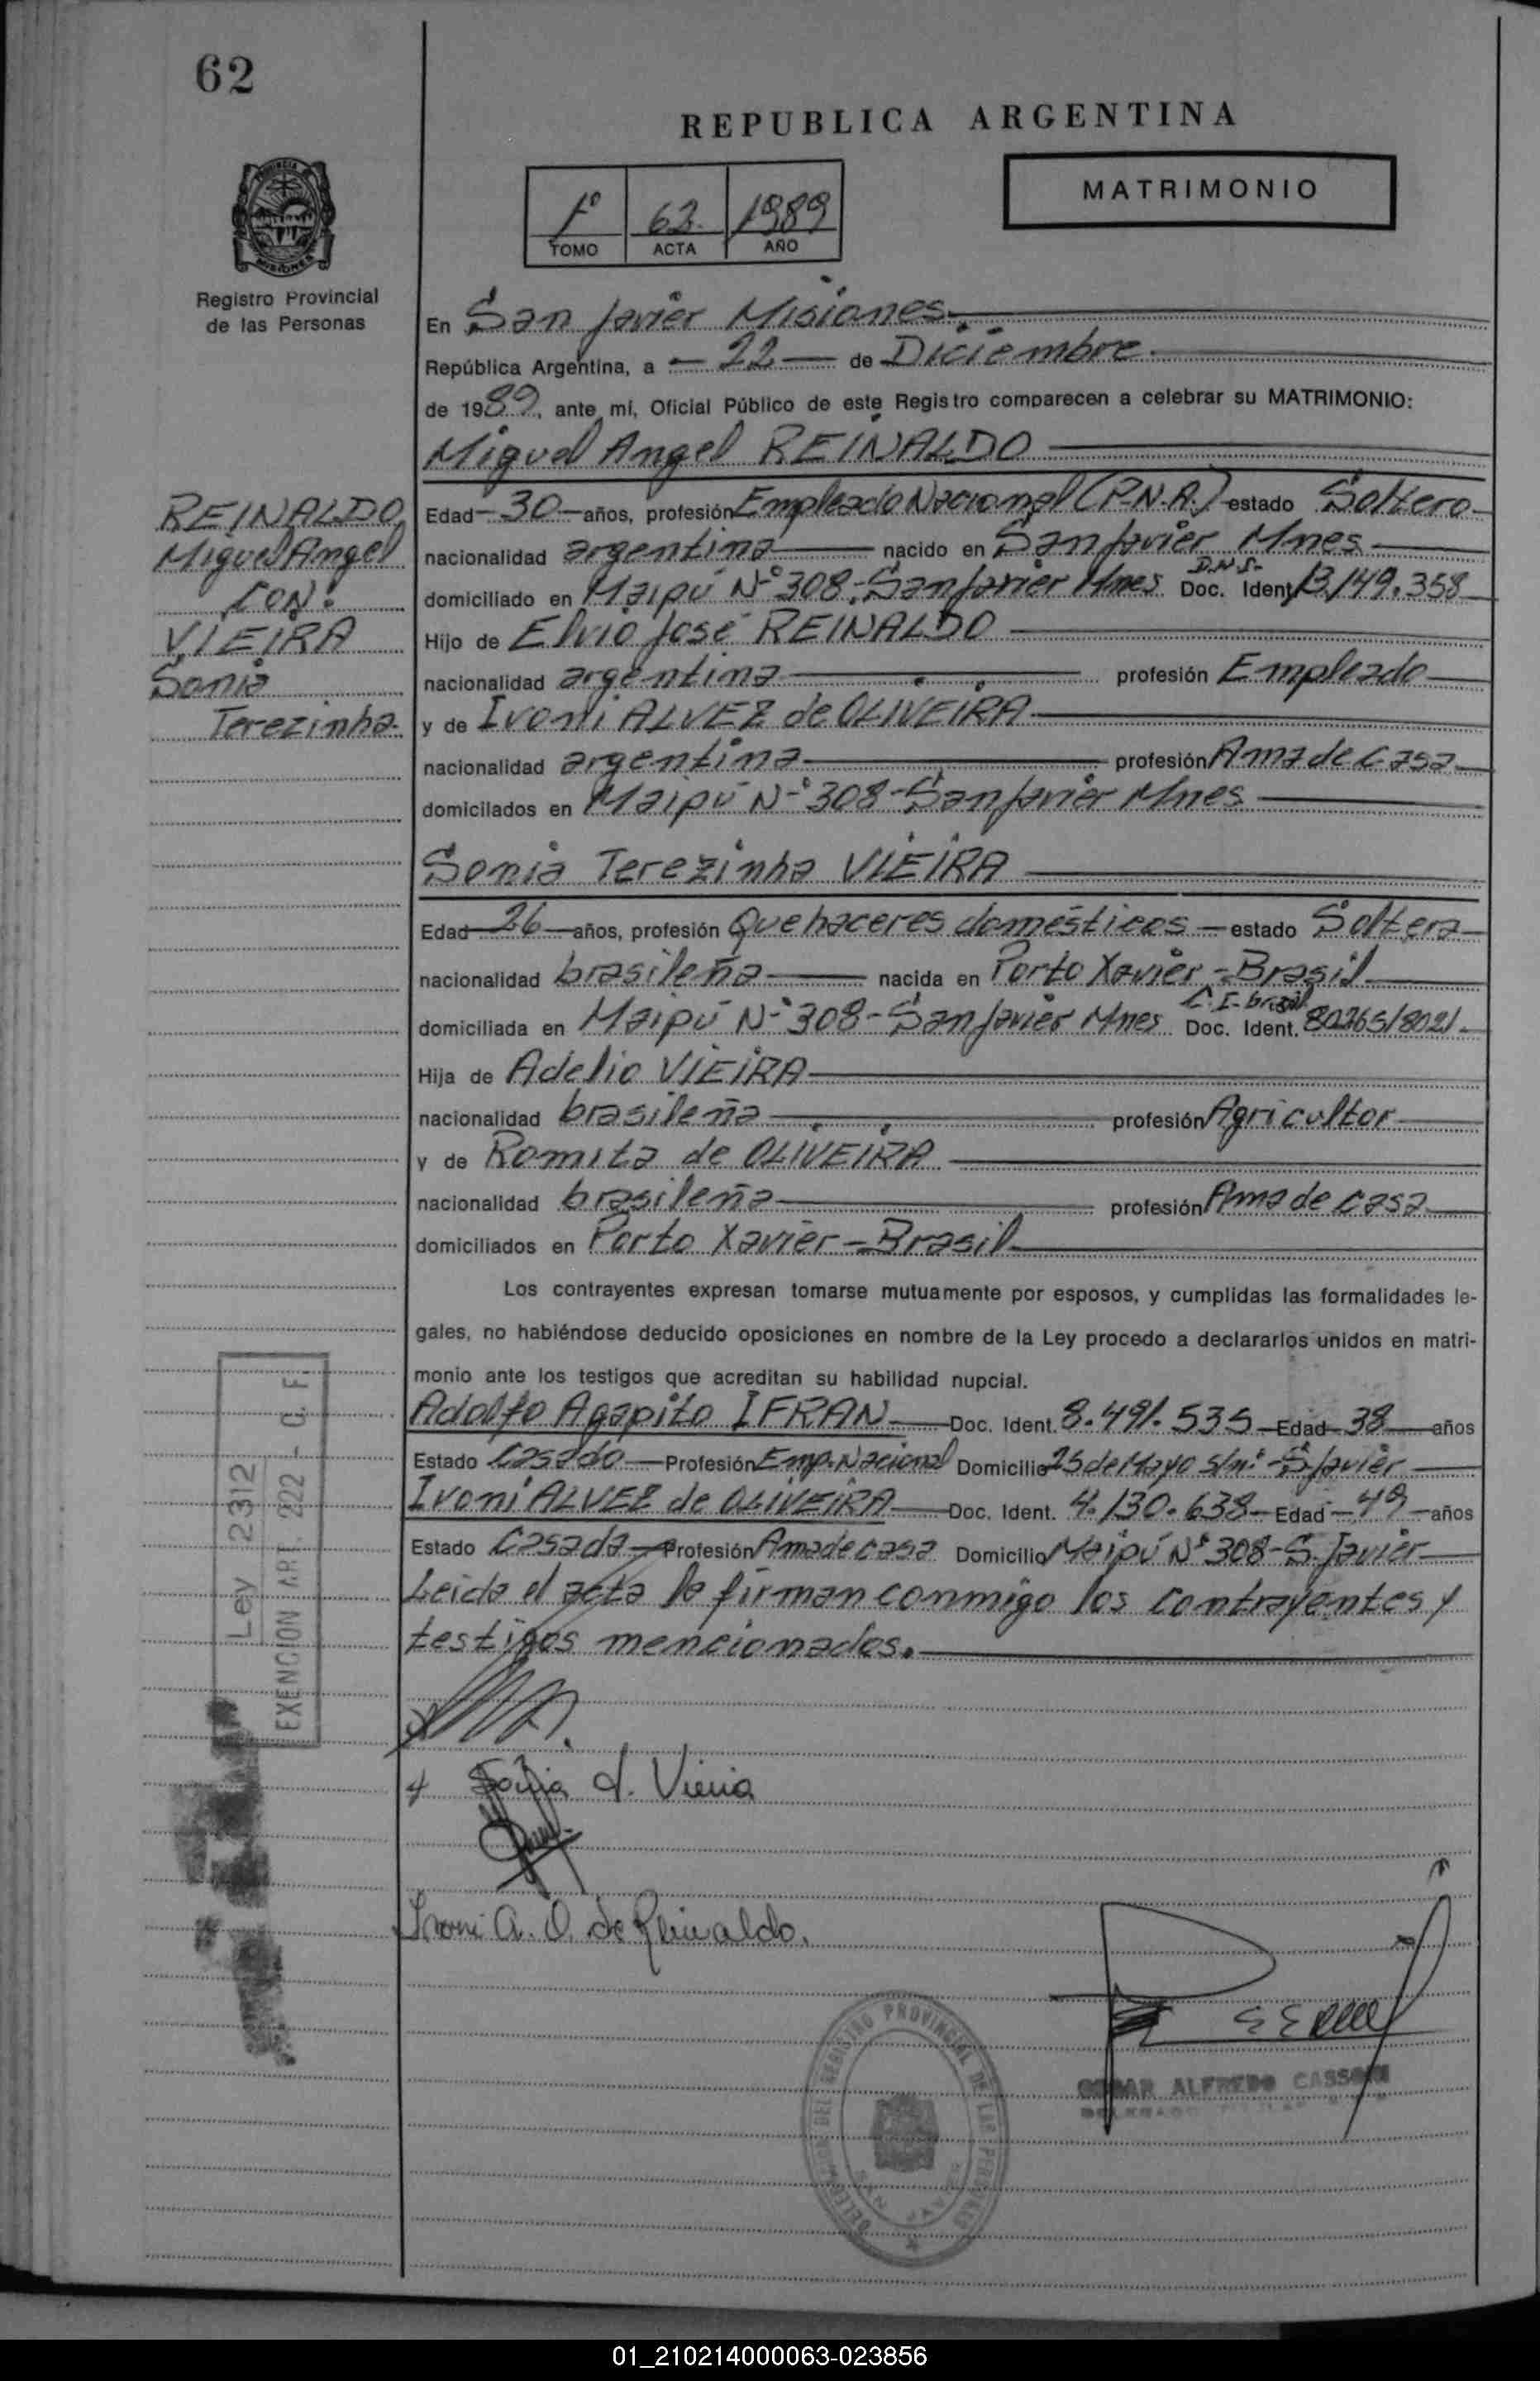 62
REPUBLICA ARGENTINA
MATRIMONIO
1º 62. 1989
TOMO ACTA AÑO
PROVINCIA DE
MISIONES
Registro Provincial
de las Personas
En San Javier Misiones.
República Argentina, a 22 de Diciembre.
de 1989, ante mí, Oficial Público de este Registro comparecen a celebrar su MATRIMONIO:
Miguel Angel REINALDO
REINALDO,
Miguel Angel
CON:
VIEIRA
Sonia
Terezinha.
Edad 30 años, profesión Empleado Nacional (P.N.A.) estado Soltero
nacionalidad argentina nacido en San Javier Mnes
domiciliado en Maipú Nº 308 - San Javier Mnes. Doc. Ident. 13.149.358
Hijo de Elvio José REINALDO
nacionalidad argentina profesión Empleado
y de Ivoni ALVEZ de OLIVEIRA
nacionalidad argentina profesión Ama de casa
domicilados en Maipú Nº 308 - San Javier Mnes
Sonia Terezinha VIEIRA
Edad 26 años, profesión Quehaceres domésticos estado Soltera
nacionalidad brasileña nacida en Porto Xavier - Brasil
C.I. brasil
domiciliada en Maipú Nº 308 - San Javier Mnes Doc. Ident. 80265/8021
Hija de Adelio VIEIRA
nacionalidad brasileña profesión Agricultor
y de Romita de OLIVEIRA
nacionalidad brasileña profesión Ama de casa
domiciliados en Porto Xavier - Brasil
Los contrayentes expresan tomarse mutuamente por esposos, y cumplidas las formalidades le-
gales, no habiéndose deducido oposiciones en nombre de la Ley procedo a declararlos unidos en matri-
monio ante los testigos que acreditan su habilidad nupcial.
Adolfo Agapito IFRAN Doc. Ident. 8.491.535 Edad 38 años
Estado Casado Profesión Emp. Nacional Domicilio 25 de Mayo s/nº - S. Javier
Ivoni ALVEZ de OLIVEIRA Doc. Ident. 4.130.638 Edad 49 años
Estado Casada Profesión Ama de casa Domicilio Maipú Nº 308 - S. Javier
Leida el acta la firman conmigo los contrayentes y
testigos mencionados.
Ley 2312
EXENCION ART. 222 - C. F.
Sonia T. Vieira
Ivoni A. O. de Reinaldo.
DELEGACION DEL REGISTRO PROVINCIAL DE LAS PERSONAS
SAN JAVIER
ALFREDO
01_210214000063-023856